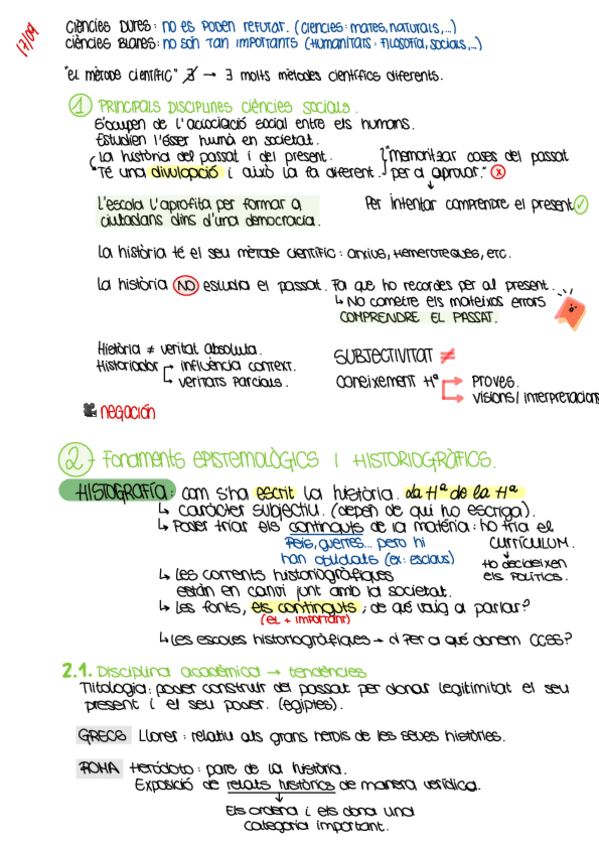 17/09
Ciències Dures: no es poden refutar. (Ciències: mates, naturals,...)
Ciències Blanes: no són tan importants (Humanitats: Filosofia, socials,...)
"El mètode científic" ∄ → ∃ molts mètodes científics diferents.
1 Principals disciplines ciències socials.
S'ocupen de l'associació social entre els humans.
Estudien l'ésser humà en societat.
La història del passat i del present.
Té una divulgació i això la fa diferent.
"Memoritzar coses del passat
per a aprovar." x
L'escola l'aprofita per formar a
ciutadans dins d'una democràcia.
Per intentar comprendre el present ✓
La història té el seu mètode científic: arxius, hemeroteques, etc.
La història NO estudia el passat. Fa que ho recordes per al present.
↳ No cometre els mateixos errors
COMPRENDRE EL PASSAT.
Història ≠ veritat absoluta.
Historiador → influència context.
↳ veritats parcials.
SUBJECTIVITAT ≠
Coneixement Hª → Proves.
→ Visions/Interpretacions
negación
2 - Fonaments EPISTEMOLÒGICS I HISTORIOGRÀFICS.
HISTOGRAFÍA: com s'ha escrit la història. La Hª de la Hª
↳ caràcter subjectiu. (depén de qui ho escriga).
↳ Poder triar els continguts de la matèria: ho tria el
CURRÍCULUM.
Reis, guerres... però hi
han oblidats (ex: esclaus)
Ho decideixen
els polítics.
↳ Les corrents historiogràfiques
estàn en canvi junt amb la societat.
↳ Les fonts, els continguts; de què vaig a parlar?
(el + important)
↳ Les escoles historiogràfiques → ¿Per a què donem CCES?
2.1. Disciplina acadèmica → tendències
Mitologia: poder construir del passat per donar legitimitat el seu
present i el seu poder. (egiptes).
GRECS Lloren: relatiu als grans herois de les seves històries.
ROMA Heròdoto: pare de la història.
Exposició de relats històrics de manera verídica.
↓
Els ordena i els dona una
categoria important.